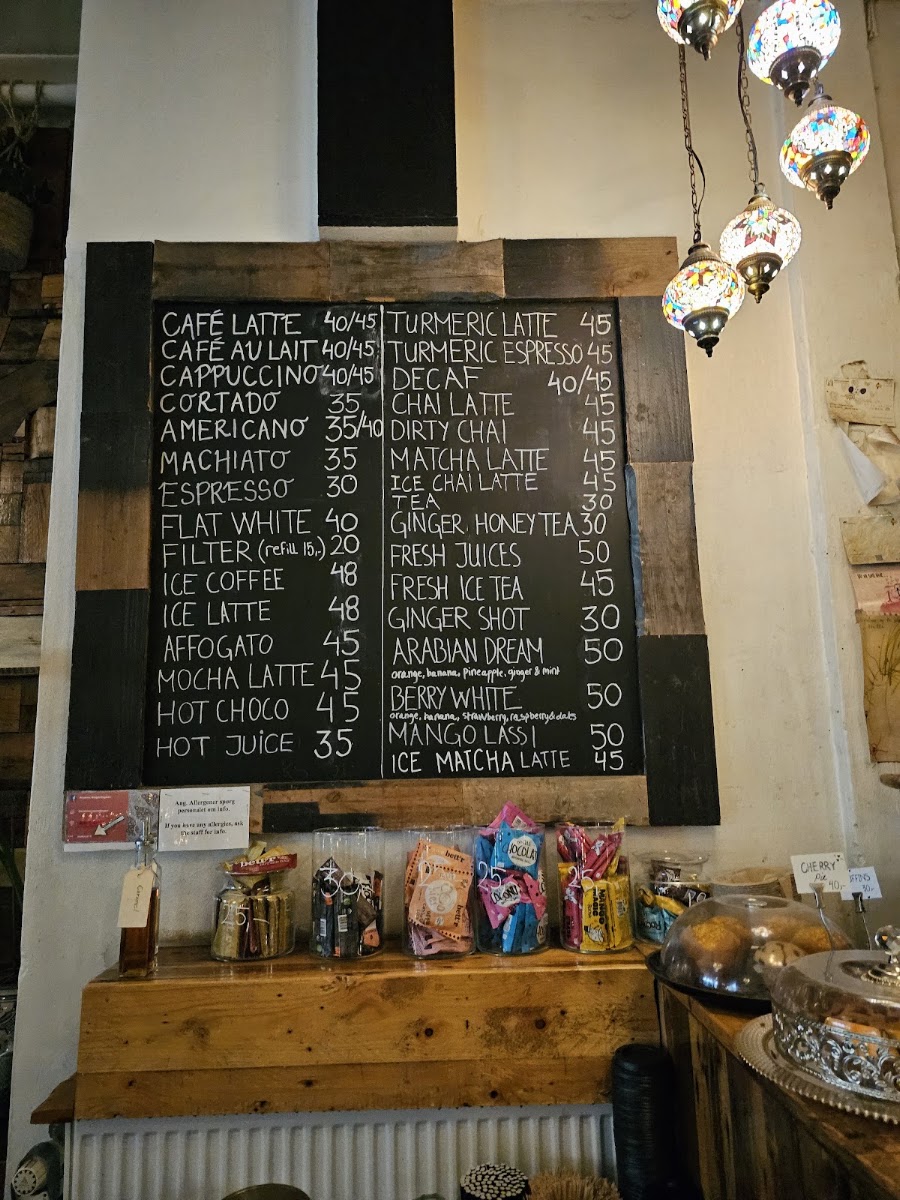 CAFÉ LATTE 40/45
CAFÉ AU LAIT 40/45
CAPPUCCINO 40/45
CORTADO 35
AMERICANO 35/40
MACHIATO 35
ESPRESSO 30
FLAT WHITE 40
FILTER (refill 15,-) 20
ICE COFFEE 48
ICE LATTE 48
AFFOGATO 45
MOCHA LATTE 45
HOT CHOCO 45
HOT JUICE 35
TURMERIC LATTE 45
TURMERIC ESPRESSO 45
DECAF 40/45
CHAI LATTE 45
DIRTY CHAI 45
MATCHA LATTE 45
ICE CHAI LATTE 45
TEA 30
GINGER HONEY TEA 30
FRESH JUICES 50
FRESH ICE TEA 45
GINGER SHOT 30
ARABIAN DREAM 50
orange, banana, pineapple, ginger & mint
BERRY WHITE 50
orange, banana, strawberry, raspberry & dates
MANGO LASSI 50
ICE MATCHA LATTE 45
Ang. Allergener spørg
personalet om info.
If you have any allergies, ask
the staff for info.
Caramel
25,-
30,-
25
25
CHERRY
Pie
40,-